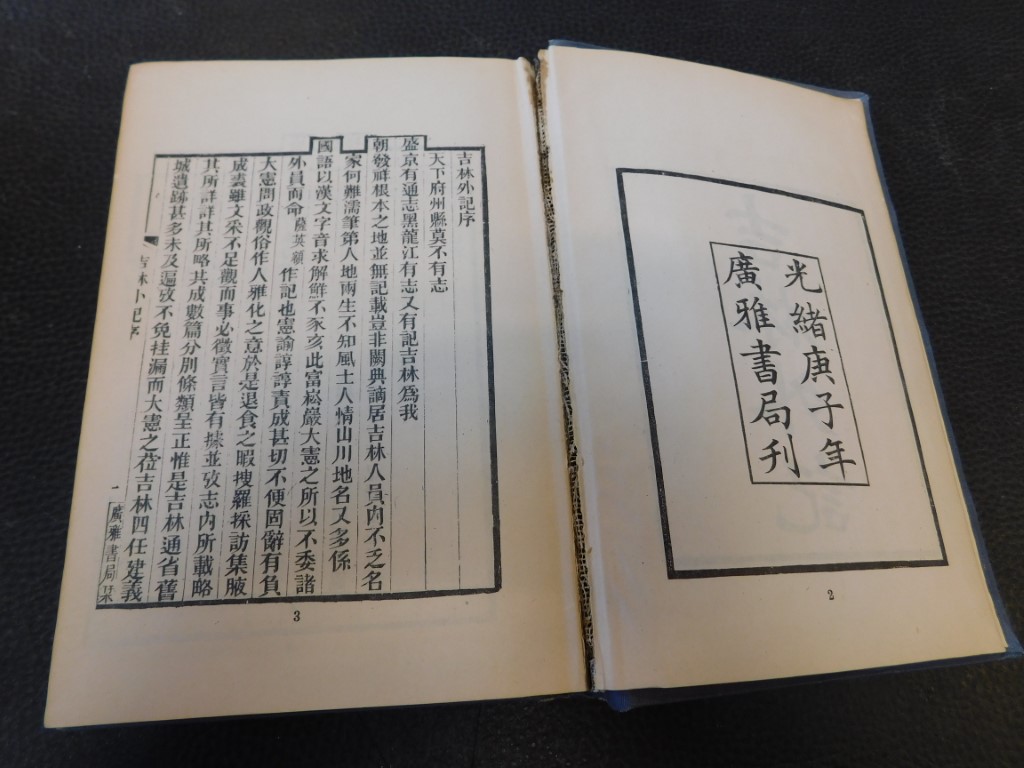 光緒庚子年
廣雅書局刊
2
吉林外記序
天下府州縣莫不有志
盛京有通志黑龍江有志又有記吉林為我
朝發祥根本之地並無記載豈非闕典謫居吉林人員內不乏名
家何難濡筆第人地兩生不知風土人情山川地名又多係
國語以漢文字音求解鮮不豕亥此富崧巖大憲之所以不委諸
外員而命薩英額作記也憲諭諄諄責成甚切不便固辭有負
大憲問政觀俗作人雅化之意於是退食之暇搜羅採訪集腋
成裘雖文采不足觀而事必徵實言皆有據並攷志內所載略
其所詳詳其所略共成數篇分別條類呈正惟是吉林通省舊
城遺跡甚多未及遍攷不免挂漏而大憲之蒞吉林四任建義
吉林外記序
一
廣雅書局栞
3